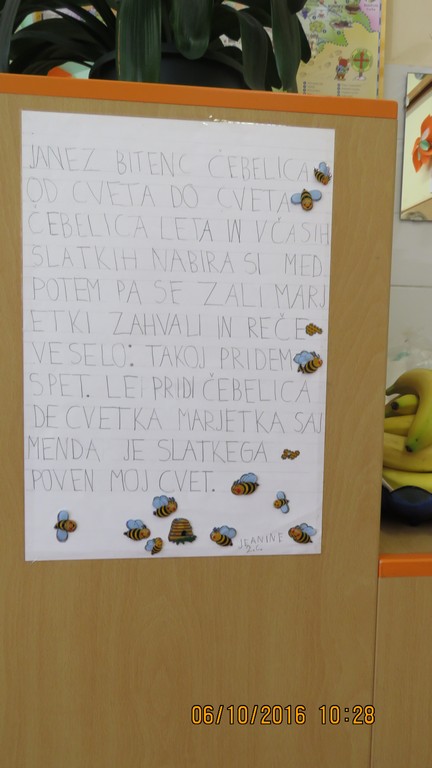 JANEZ BITENC ČEBELICA
OD CVETA DO CVETA
ČEBELICA LETA IN VČASIH
SLATKIH NABIRA SI MED
POTEM PA SE ZALI MARJ
ETKI ZAHVALI IN REČE
VESELO: TAKOJ PRIDEM
SPET. LEI PRIDI ČEBELICA
DE CVETKA MARJETKA SAJ
MENDA JE SLATKEGA
POVEN MOJ CVET.
JEANINE
2.C.
06/10/2016 10:28